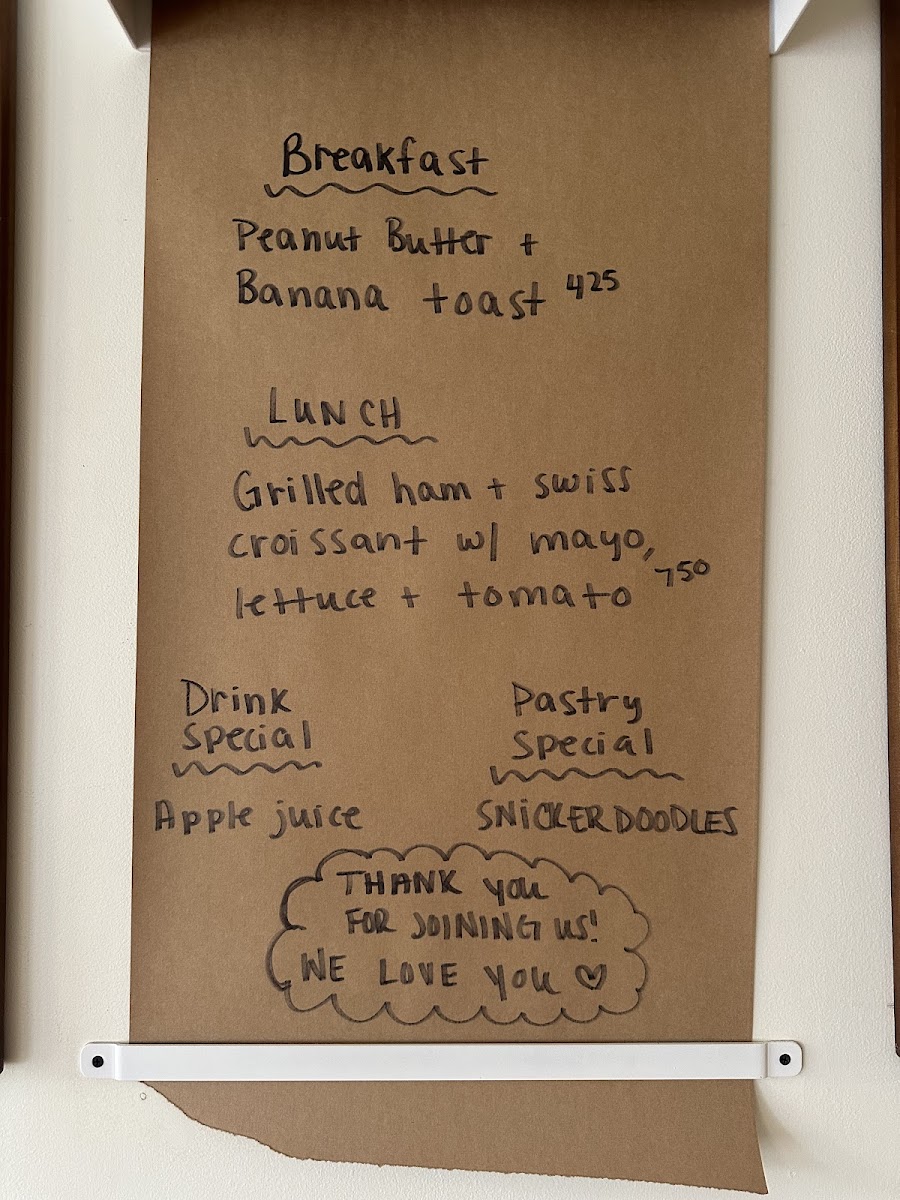 Breakfast
Peanut Butter +
Banana toast 425
LUNCH
Grilled ham + swiss
croissant w/ mayo,
lettuce + tomato 750
Drink
Special
Apple juice
Pastry
Special
SNICKERDOODLES
THANK you
FOR JOINING US!
WE LOVE you ♡